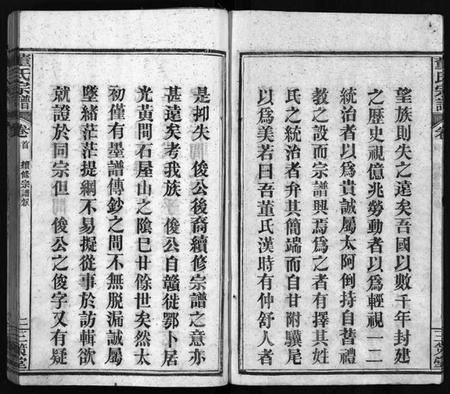 望族則失之遠矣吾國以數千年封建
之歷史視億兆勞動者以爲輕視一二
統治者以爲貴誠屬太阿倒持自晉禮
教之設而宗譜興焉爲之者有擇其姓
氏之統治者弁其簡端而自甘附驥尾
以爲美若曰吾董氏漢時有仲舒人者
董氏宗譜
卷
三策堂
董氏宗譜
卷首
續修宗譜敘
二
三策堂
是抑失 俊公後裔續修宗譜之意亦
甚遠矣考我族 俊公自贛徙鄂卜居
光黃間石屋山之陰已廿餘世矣然太
初僅有墨譜傳鈔之間不無脫漏誠屬
墜緒茫茫提綱不易擬從事於訪輯欲
就證於同宗但 俊公之俊字又有疑